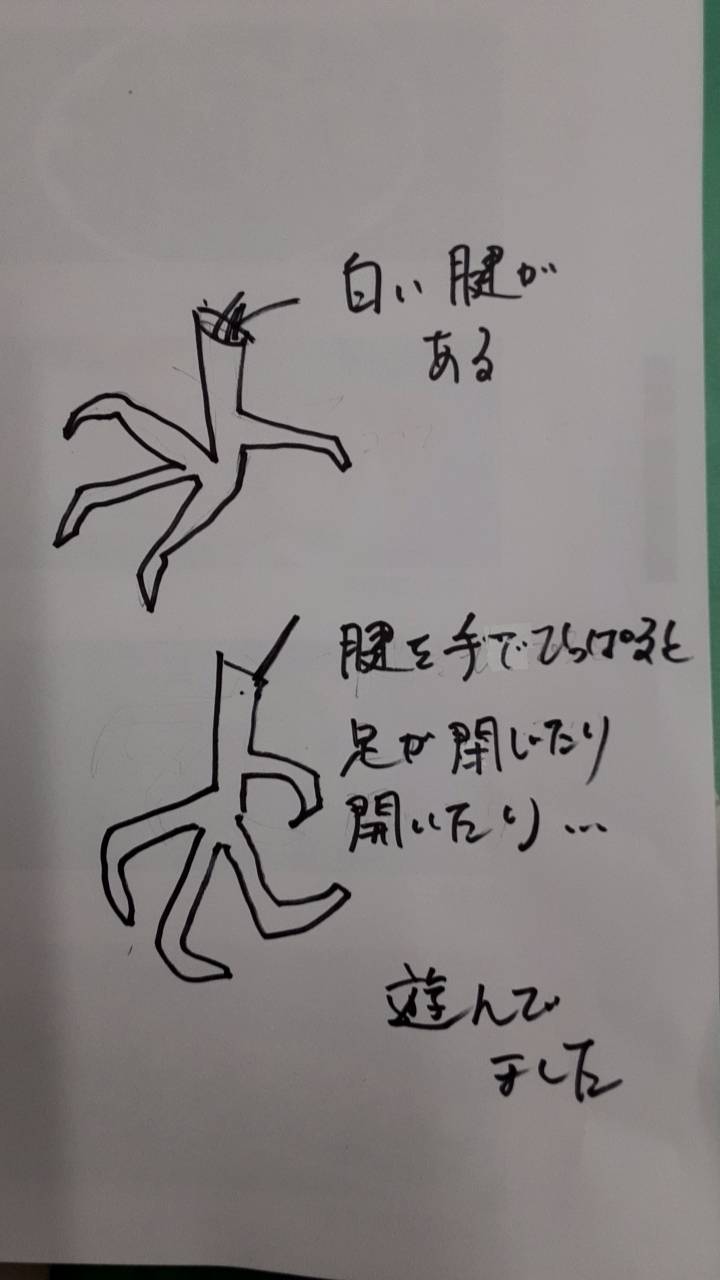 白い腱が
ある
腱を手でひっぱると
足が閉じたり
開いたり…
遊んで
ました